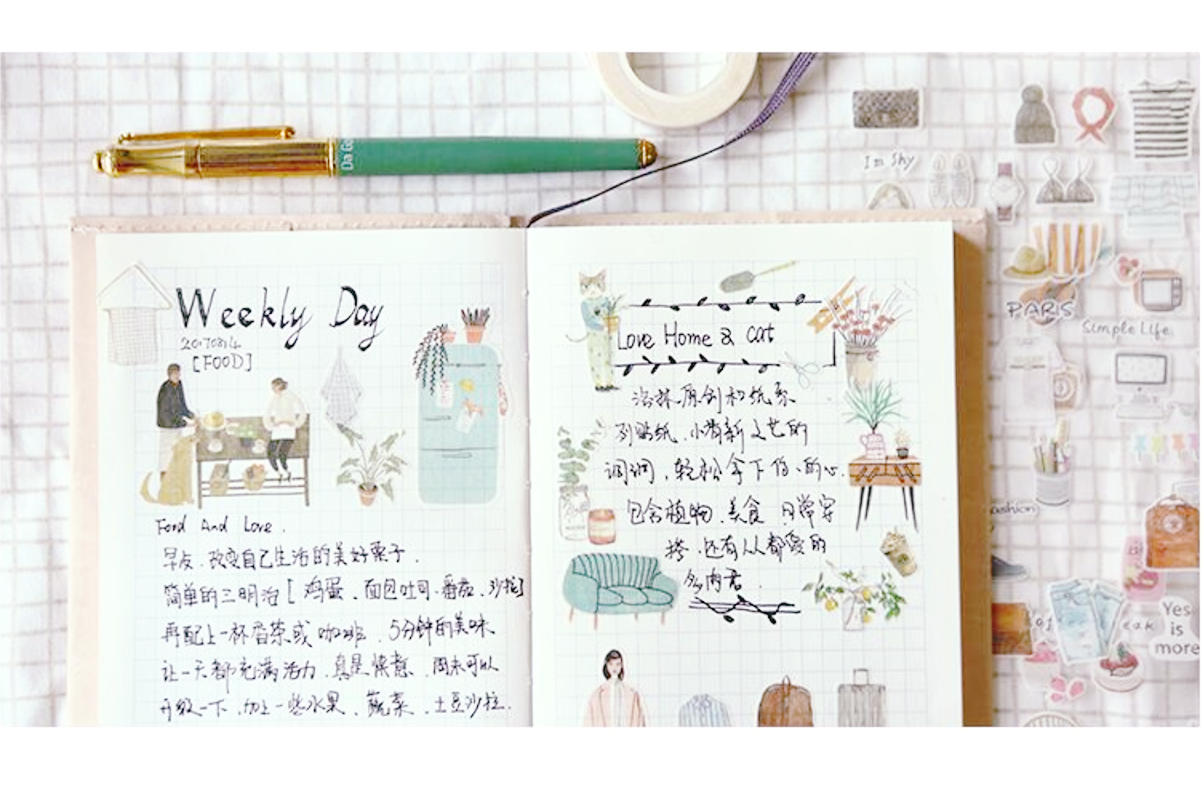 Da Ga
Weekly Day
20170814
[FOOD]
Food And Love.
早点.改变自己生活的美好栗子.
简单的三明治[鸡蛋、面包吐司、番茄、沙拉]
再配上一杯香茶或咖啡、5分钟的美味
让一天都充满活力、真是惬意、周末可以
升级一下、加上一些水果、蔬菜、土豆沙拉.
Love Home & cat
洛林原创和纸系
列贴纸、小清新文艺的
调调,轻松拿下你的心.
包含植物、美食 日常穿
搭、还有人人都爱的
多肉君.
I'm Shy
PARIS
Simple Life.
Fashion
Yes
is
more